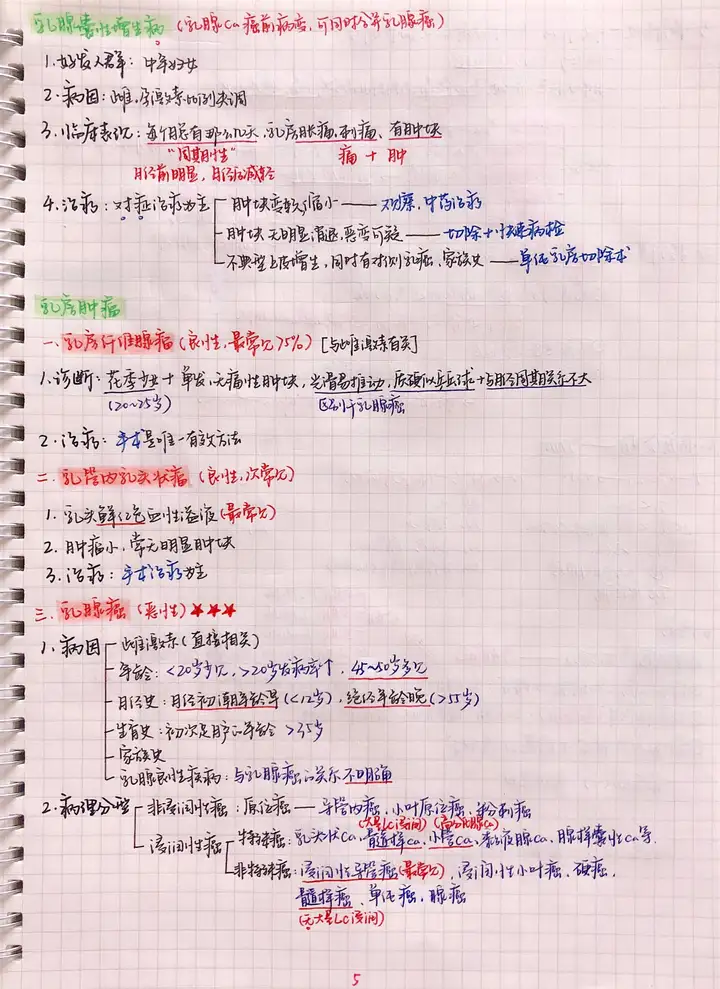 乳腺囊性增生病 (乳腺Ca癌前病变,可同时合并乳腺癌)
1.好发人群: 中年妇女
2.病因: 雌,孕激素比例失调
3.临床表现: 每个月总有那么几天,乳房胀痛,刺痛、有肿块
"周期性" 痛+肿
月经前明显,月经后减轻
4.治疗: 对症治疗为主 肿块变软/缩小——观察,中药治疗
肿块无明显消退,恶变可疑——切除+快速病检
不典型上皮增生,同时有对侧乳癌、家族史——单纯乳房切除术
乳房肿瘤
一.乳房纤维腺瘤 (良性,最常见75%) [与雌激素有关]
1.诊断: 花季少女+单发,无痛性肿块,光滑易推动,质硬似乒乓球+与月经周期关系不大
(20~25岁) 区别于乳腺癌
2.治疗: 手术是唯一有效方法
二.乳管内乳头状瘤 (良性,次常见)
1.乳头鲜红色血性溢液(最常见)
2.肿瘤小,常无明显肿块
3.治疗: 手术治疗为主
三.乳腺癌 (恶性)★★★
1.病因 雌激素(直接相关)
年龄: <20岁少见,>20岁发病率↑,45~50岁多见
月经史: 月经初潮年龄早(<12岁),绝经年龄晚(>55岁)
生育史: 初次足月产年龄>35岁
家族史
乳腺良性疾病: 与乳腺癌的关系不明确
2.病理分型 非浸润性癌: 原位癌——导管内癌,小叶原位癌,粉刺癌
(大量LC浸润) (高分化腺Ca)
浸润性癌 特殊癌: 乳头状Ca,髓样Ca,小管Ca,黏液腺Ca,腺样囊性Ca等
非特殊癌: 浸润性导管癌(最常见),浸润性小叶癌,硬癌,
髓样癌,单纯癌,腺癌
(无大量LC浸润)
5